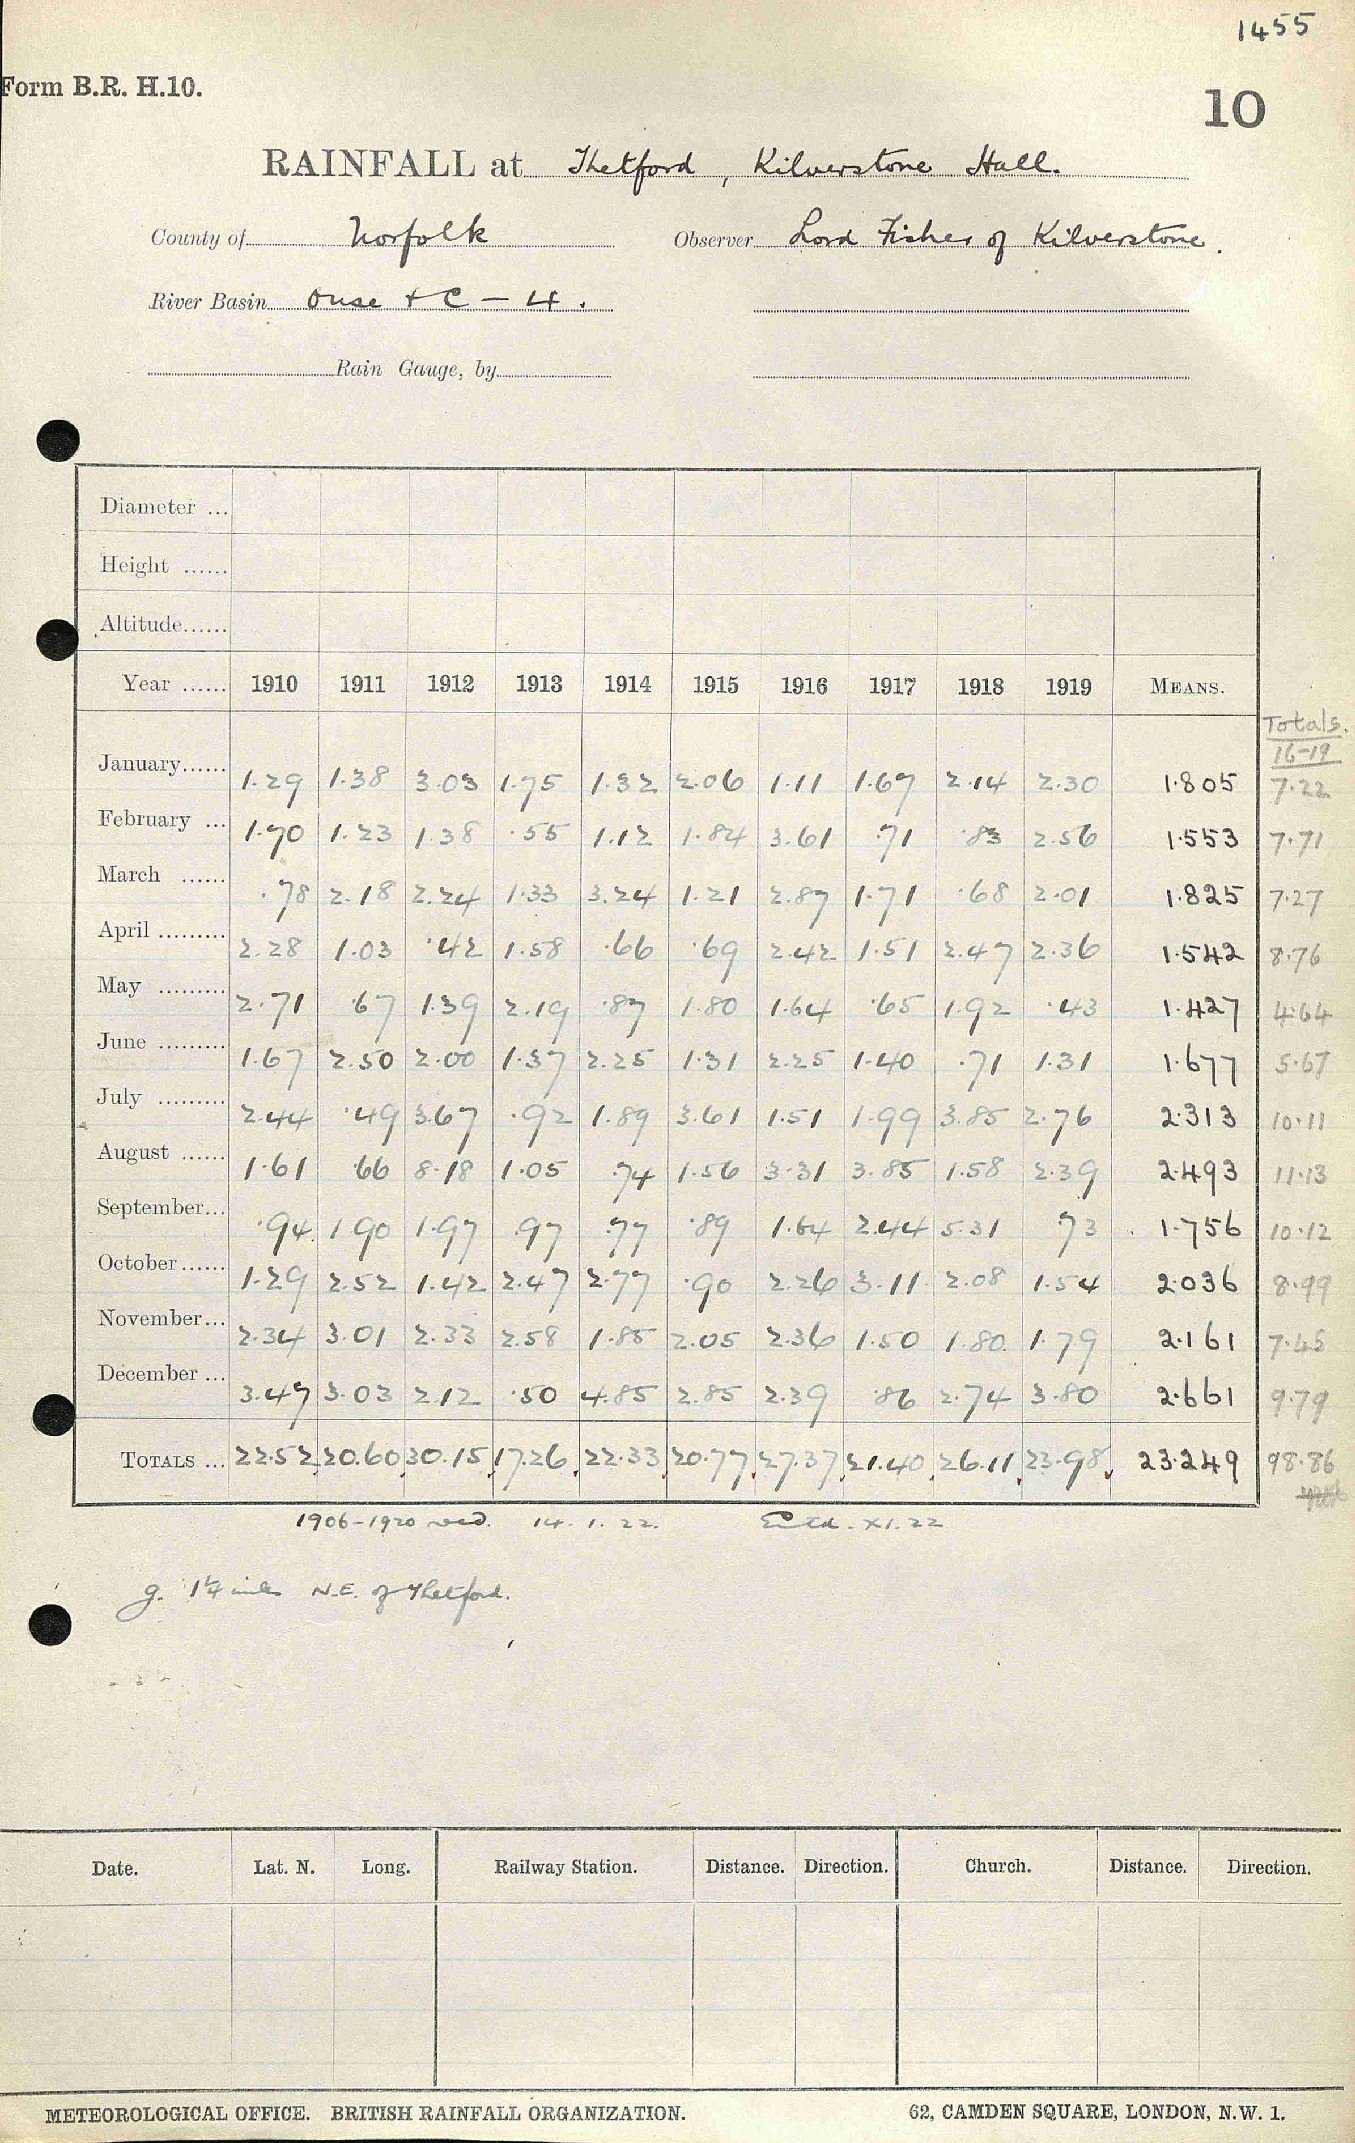 1455
Form B.R. H.10.
10
RAINFALL at Thetford, Kilverstone Hall.
County of Norfolk Observer Lord Fisher of Kilverstone.
River Basin Ouse + C - 4.
Rain Gauge, by
Diameter ...
Height ......
Altitude......
Year ...... 1910 1911 1912 1913 1914 1915 1916 1917 1918 1919 MEANS.
Totals.
16-19
January...... 1.29 1.38 3.03 1.75 1.32 2.06 1.11 1.67 2.14 2.30 1.805 7.22
February ... 1.70 1.23 1.38 .55 1.12 1.84 3.61 .71 .83 2.56 1.553 7.71
March ...... .78 2.18 2.24 1.33 3.24 1.21 2.87 1.71 .68 2.01 1.825 7.27
April ......... 2.28 1.03 .42 1.58 .66 .69 2.42 1.51 2.47 2.36 1.542 8.76
May ......... 2.71 .67 1.39 2.19 .87 1.80 1.64 .65 1.92 .43 1.427 4.64
June ......... 1.67 2.50 2.00 1.37 2.25 1.31 2.25 1.40 .71 1.31 1.677 5.67
July ......... 2.44 .49 3.67 .92 1.89 3.61 1.51 1.99 3.85 2.76 2.313 10.11
August ...... 1.61 .66 8.18 1.05 .74 1.56 3.31 3.85 1.58 2.39 2.493 11.13
September... .94 1.90 1.97 .97 .77 .89 1.64 2.44 5.31 .73 1.756 10.12
October...... 1.29 2.52 1.42 2.47 2.77 .90 2.26 3.11 2.08 1.54 2.036 8.99
November... 2.34 3.01 2.33 2.58 1.85 2.05 2.36 1.50 1.80 1.79 2.161 7.45
December ... 3.47 3.03 2.12 .50 4.85 2.85 2.39 .86 2.74 3.80 2.661 9.79
TOTALS ... 22.52 20.60 30.15 17.26 22.33 20.77 27.37 21.40 26.11 23.98 23.249 98.86
1906-1920 14.1.22. XI.22
g. 1¼ miles N.E. of Thetford.
Date. Lat. N. Long. Railway Station. Distance. Direction. Church. Distance. Direction.
METEOROLOGICAL OFFICE. BRITISH RAINFALL ORGANIZATION. 62, CAMDEN SQUARE, LONDON, N.W. 1.